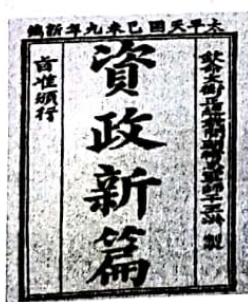 太平天囯己未九年新
欽命文衡正總裁開朝精忠軍師干王洪 製
資政新篇
旨准頒行